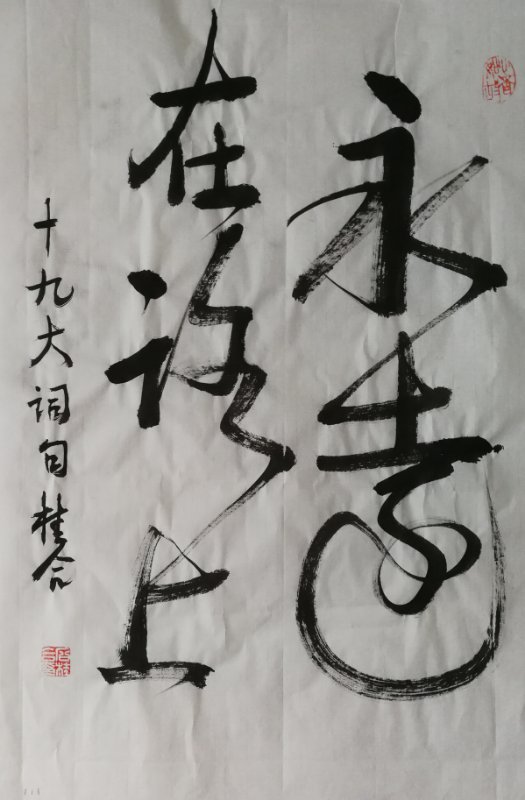 永远
在路上
十九大词句桂合